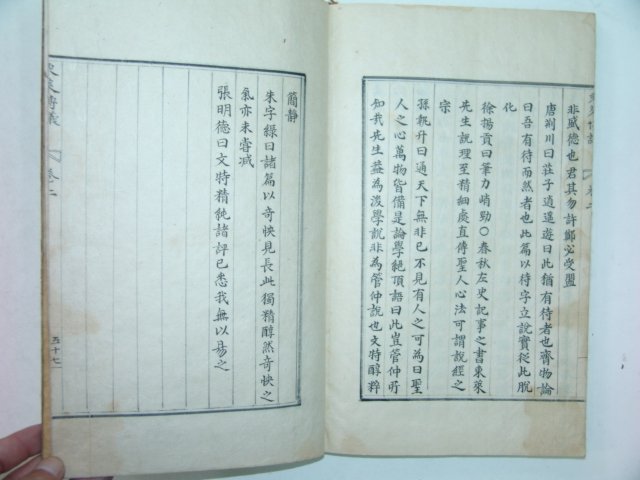 非盛德也君其勿許鄭必受盟
唐荊川曰莊子逍遥遊曰此猶有待者也齊物論
曰吾有待而然者也此篇以待字立說實從此脫
化
徐揚貢曰筆力峭勁○春秋左史記事之書東萊
先生說理至精細處直傳聖人心法可謂說經之
宗
孫執升曰通天下無非已不見有人之可為曰聖
人之心萬物皆備是論學絕頂語曰此豈管仲
知我先生益為淺學說非為管仲說也文特醇粹
簡靜
朱字綠曰諸篇以奇快見長此獨精醇然奇快之
氣亦未嘗减
張明德曰文特精純諸評已悉我無以易之
卷二
五十七